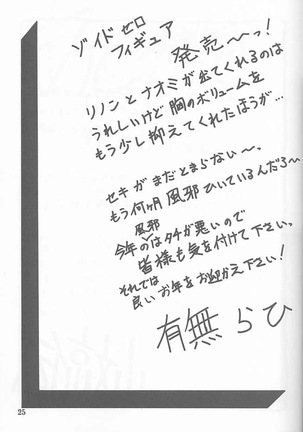 ゾイドゼロ
フィギュア
発売〜っ!
リノンとナオミが出てくれるのは
うれしいけど胸のボリュームを
もう少し抑えてくれたほうが…
セキがまだとまらない〜、
もう何ヶ月風邪ひいているんだろ〜
風邪
今年のはタチが悪いので
皆様も気を付けて下さい。
それでは
良いお年をお迎え下さい!
有無らひ
25